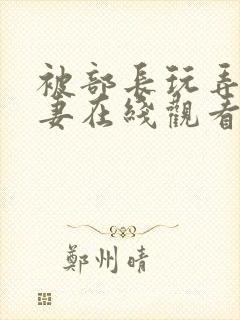 被部長玩弄
妻在綫觀看
鄭州晴